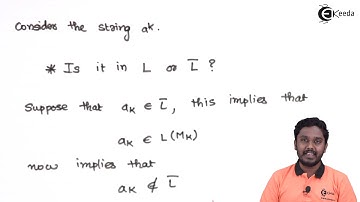 Consider the string aᵏ.
Ekeeda
* Is it in L or L̅ ?
Suppose that aₖ ∈ L̅, this implies that
aₖ ∈ L(Mₖ)
now implies that
aₖ ∉ L̅